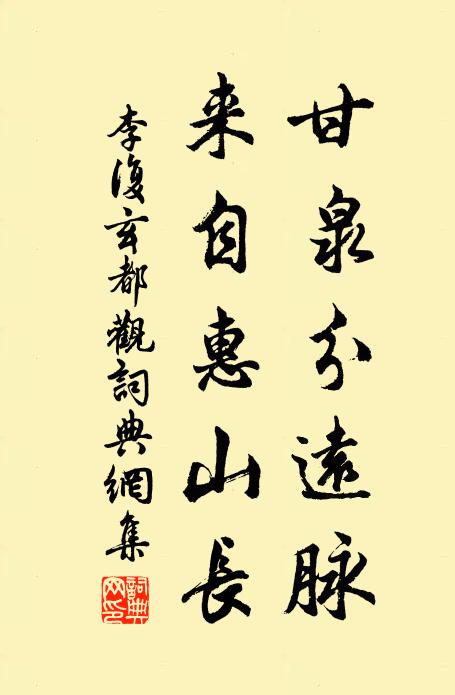 甘泉分遠脉
来自惠山長
李復玄都觀詞典網集
詞典網印